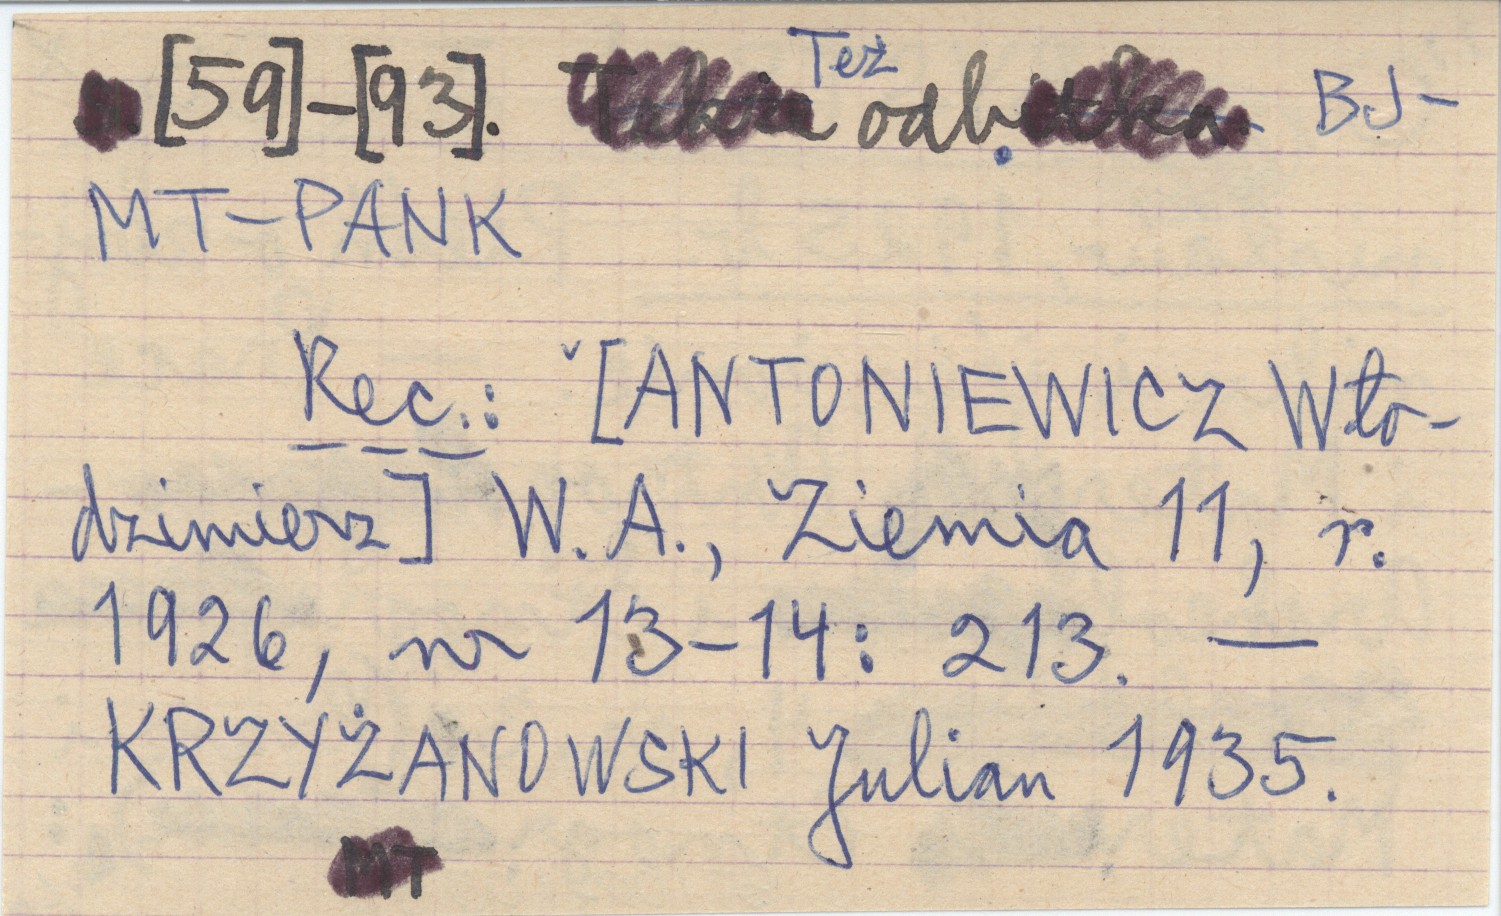 [59]-[93]. Też odb. BJ-
MT-PANK
Rec.: [ANTONIEWICZ Wło-
dzimierz] W.A., Ziemia 11, r.
1926, nr 13-14: 213. —
KRZYŻANOWSKI Julian 1935.
MT